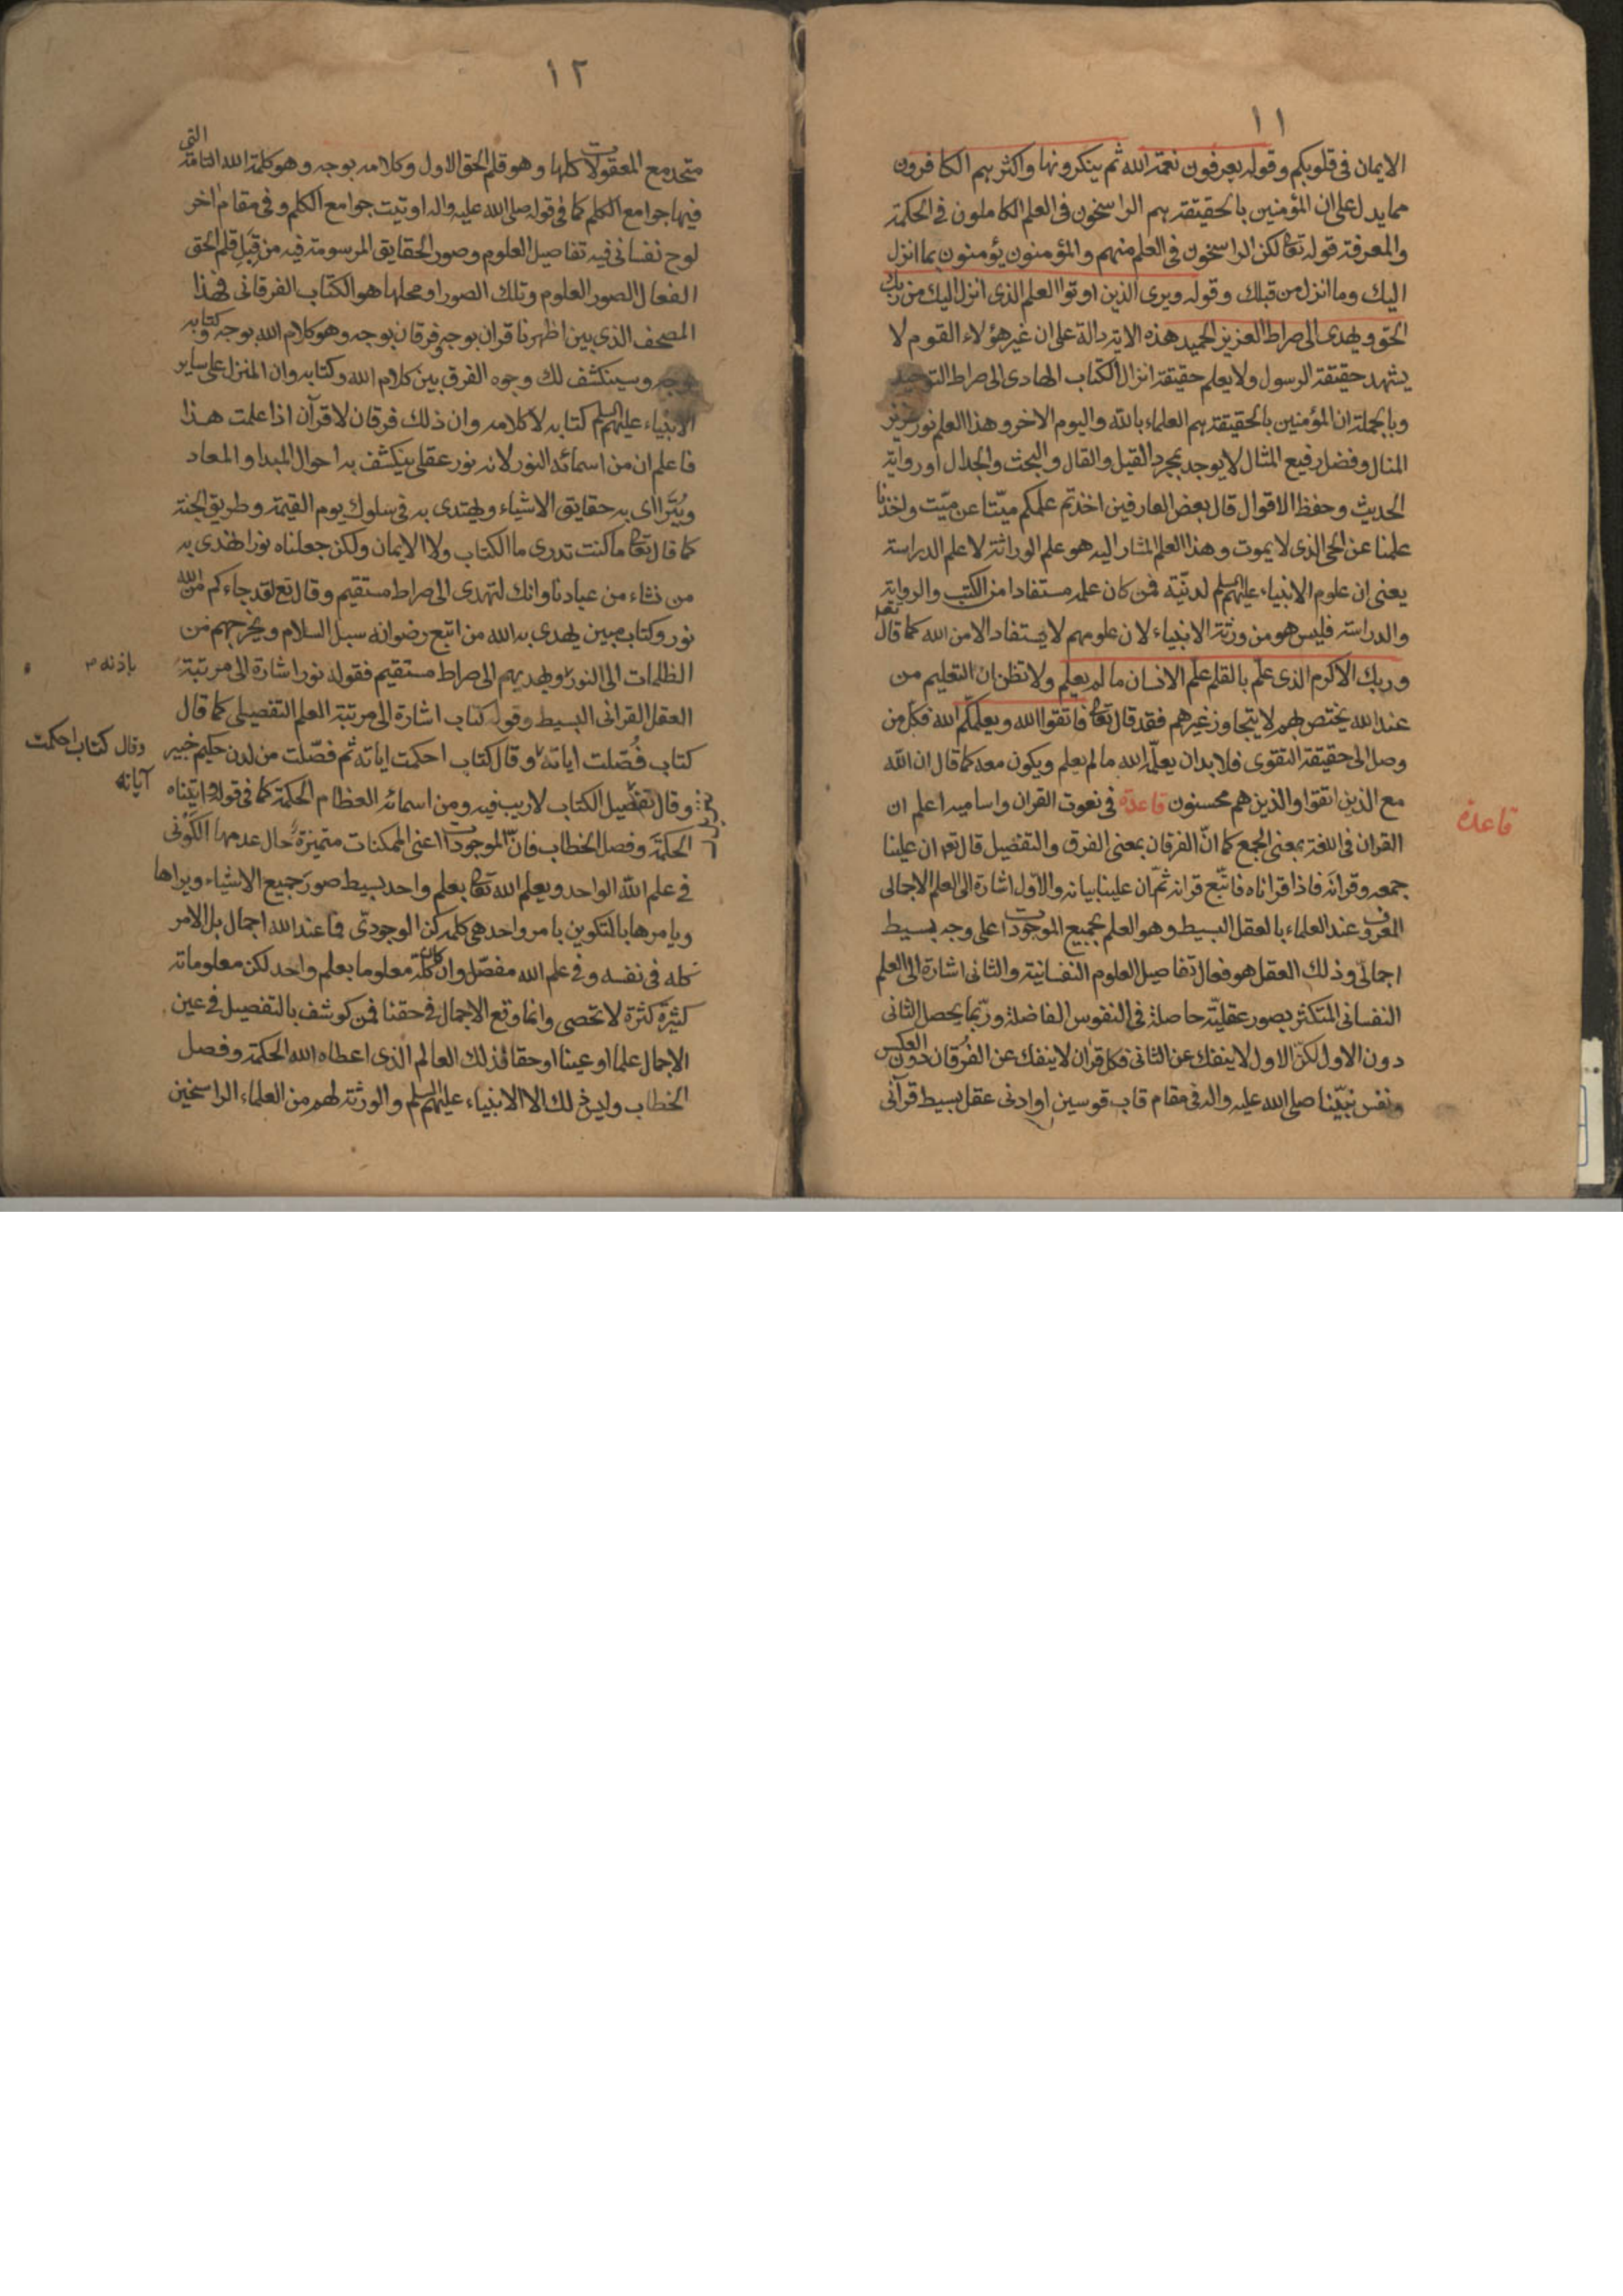 ١١
الايمان في قلوبكم وقوله يعرفون نعمة الله ثم ينكرونها واكثرهم الكافرون
مما يدل على ان المؤمنين بالحقيقة هم الراسخون في العلم الكاملون في الحكمة
والمعرفة قوله تعالى لكن الراسخون في العلم منهم والمؤمنون يؤمنون بما انزل
اليك وما انزل من قبلك وقوله ويرى الذين اوتوا العلم الذى انزل اليك من ربك
الحق ويهدى الى صراط العزيز الحميد هذه الاية دالة على ان غير هؤلاء القوم لا
يشهد حقيقة الرسول ولا يعلم حقيقة انزال الكتاب الهادى الى صراط التوحيد
وبالجملة ان المؤمنين بالحقيقة هم العلماء بالله واليوم الاخر وهذا العلم نور عزيز
المنال وفضل رفيع المثال لا يوجد بمجرد القيل والقال والبحث والجدال او رواية
الحديث وحفظ الاقوال قال بعض العارفين اخذتم علمكم ميّتا عن ميّت واخذنا
علمنا عن الحى الذى لا يموت وهذا العلم المشار اليه هو علم الوراثة لا علم الدراسة
يعنى ان علوم الانبياء عليهم السلم لدنيّة فمن كان علمه مستفادا من الكتب والرواية
والدراسة فليس هو من ورثة الانبياء لان علومهم لا يستفاد الا من الله كما قال تعالى
وربك الاكرم الذى علّم بالقلم علّم الانسان ما لم يعلم ولا تظن ان التعليم من
عند الله يختص بهم لا يتجاوز غيرهم فقد قال تعالى فاتقوا الله ويعلمكم الله فكل من
وصل الى حقيقة التقوى فلا بد ان يعلّمه الله ما لم يعلم ويكون معه كما قال ان الله
مع الذين اتقوا والذين هم محسنون قاعدة في نعوت القران واساميه اعلم ان
قاعدة
القران في اللغة بمعنى الجمع كما انّ الفرقان بمعنى الفرق والتفضيل قال تعه ان علينا
جمعه وقرانه فاذا قراناه فاتّبع قرانه ثمّ ان علينا بيانه والاوّل اشارة الى العلم الاجمالى
المعروف عند العلماء بالعقل البسيط وهو العلم بجميع الموجودات على وجه بسيط
اجمالىّ وذلك العقل هو فعال تفاصيل العلوم النفسانية والثانى اشارة الى العلم
النفسانى المتكثر بصور عقليّة حاصلة في النفوس الفاضلة وربّما يحصل الثانى
دون الاول لكنّ الاول لا ينفك عن الثانى فكل قران لا ينفك عن الفرقان دون العكس
ونفس نبيّنا صلى الله عليه واله في مقام قاب قوسين او ادنى عقل بسيط قرآنى
١٢
متحد مع المعقولات كلها وهو قلم الحق الاول وكلامه بوجه وهو كلمة الله التامة التى
فيها جوامع الكلم كما في قوله صلى الله عليه واله اوتيت جوامع الكلم وفي مقام اخر
لوح نفسانى فيه تفاصيل العلوم وصور الحقايق المرسومة فيه من قِبَلِ قلم الحق
الفعال الصور العلوم وتلك الصور او محلها هو الكتاب الفرقانى فهذا
المصحف الذى بين اظهرنا قران بوجه وفرقان بوجه وهو كلام الله بوجه وكتابه
بوجه وسينكشف لك وجوه الفرق بين كلام الله وكتابه وان المنزل على ساير
الانبياء عليهم السلم كتابه لا كلامه وان ذلك فرقان لا قرآن اذا علمت هذا
فاعلم ان من اسمائه النور لانه نور عقلى ينكشف به احوال المبدا والمعاد
ويُتَراأى به حقايق الاشياء ويهتدى به في سلوك يوم القيمة وطريق الجنة
كما قال تعالى ما كنت تدرى ما الكتاب ولا الايمان ولكن جعلناه نورا نهدى به
من نشاء من عبادنا وانك لتهدى الى صراط مستقيم وقال تع لقد جاءكم من الله
نور وكتاب مبين يهدى به الله من اتبع رضوانه سبل السلام ويخرجهم من
الظلمات الى النور ويهديهم الى صراط مستقيم فقوله نور اشارة الى مرتبة
باذنه
العقل القرانى البسيط وقوله كتاب اشارة الى مرتبة العلم التفضيلى كما قال
كتاب فُصّلت اياته وقال كتاب احكمت اياته ثم فصّلت من لدن حكيم خبير
وقال كتاب احكمت
آياته
وقال تفضيل الكتاب لا ريب فيه ومن اسمائه العظام الحكمة كما في قوله واتيناه
الحكمة وفصل الخطاب فانّ الموجودات اعنى الممكنات متميزة حال عدمها الكَوْنى
في علم الله الواحد ويعلم الله تعالى بعلم واحد بسيط صور جميع الاشياء ويراها
ويامرها بالتكوين بامر واحد هى كلمة كن الوجودىّ فما عند الله اجمال بل الامر
كله في نفسه وفي علم الله مفصّل وان كان كلّه معلوما بعلم واحد لكن معلوماته
كثيرة كثرة لا تحصى وانما وقع الاجمال في حقنا فمن كوشف بالتفصيل في عين
الاجمال علما او عينا او حقا فذلك العالم الذى اعطاه الله الحكمة وفصل
الخطاب وليس ذلك الا الانبياء عليهم السلم والورثة لهم من العلماء الراسخين